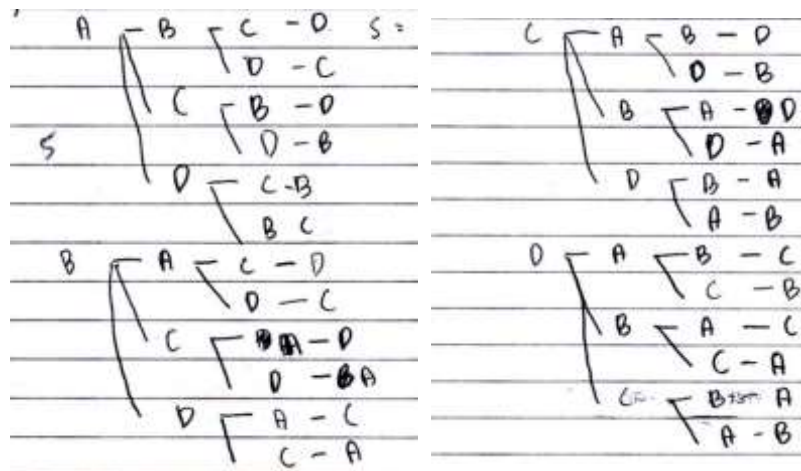 A - B - C - D S =
D - C
C - B - D
D - B
S
D - C - B
B C
B - A - C - D
D - C
C - A - D
D - A
D - A - C
C - A
C - A - B - D
D - B
B - A - D
D - A
D - B - A
A - B
D - A - B - C
C - B
B - A - C
C - A
C - B A
A - B